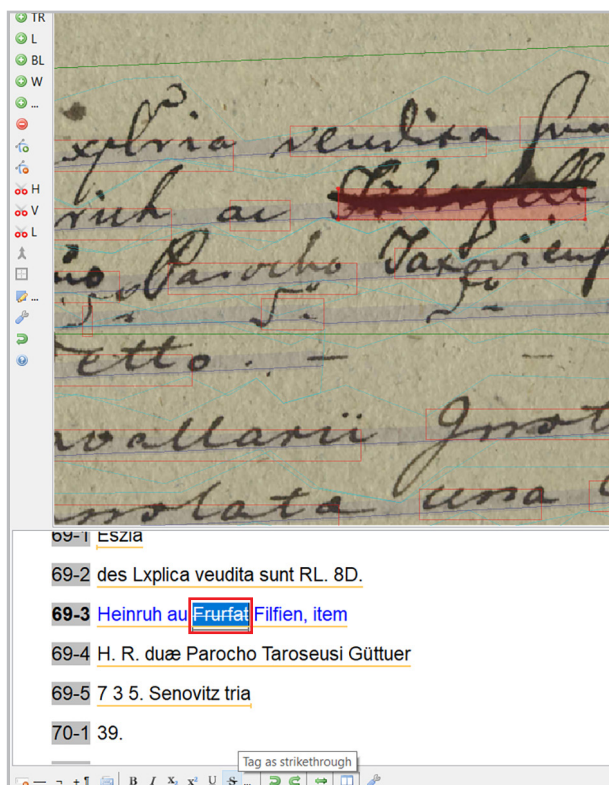 TR
L
BL
W
...
H
V
L
...
vendita
ai
Parocho
etto . . — —
avallarii
una
69-1 Eszla
69-2 des Lxplica veudita sunt RL. 8D.
69-3 Heinruh au Frurfat Filfien, item
69-4 H. R. duæ Parocho Taroseusi Güttuer
69-5 7 3 5. Senovitz tria
70-1 39.
Tag as strikethrough
B I X₂ X² U S ...